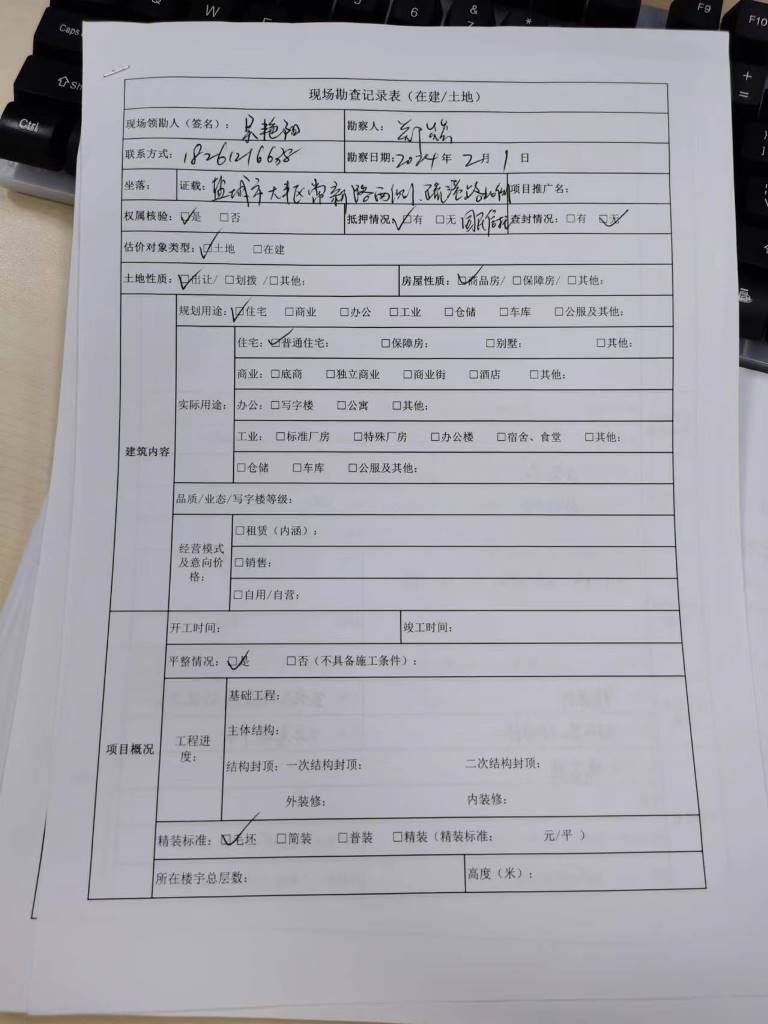 Caps
Shi
Ctrl
Q
W
6
&
*
F9
F10
+
=
现场勘查记录表（在建/土地）
现场领勘人（签名）： 吴艳阳 勘察人：
联系方式： 勘察日期：2024 年 2 月 1 日
坐落： 证载：盐城市大丰区常新路西侧、疏港路北侧 项目推广名：
权属核验：☑是 □否 抵押情况：☑有 □无 查封情况：□有 ☑无
估价对象类型：☑土地 □在建
土地性质：☑出让/ □划拨 /□其他： 房屋性质：☑商品房/ □保障房/ □其他：
建筑内容
规划用途：☑住宅 □商业 □办公 □工业 □仓储 □车库 □公服及其他：
实际用途：
住宅：☑普通住宅： □保障房： □别墅： □其他：
商业：□底商 □独立商业 □商业街 □酒店 □其他：
办公：□写字楼 □公寓 □其他：
工业：□标准厂房 □特殊厂房 □办公楼 □宿舍、食堂 □其他：
□仓储 □车库 □公服及其他：
品质/业态/写字楼等级：
经营模式
及意向价
格：
□租赁（内涵）：
□销售：
□自用/自营：
项目概况
开工时间： 竣工时间：
平整情况：☑是 □否（不具备施工条件）：
工程进
度：
基础工程：
主体结构：
结构封顶：一次结构封顶： 二次结构封顶：
外装修： 内装修：
精装标准：☑毛坯 □简装 □普装 □精装（精装标准： 元/平 ）
所在楼宇总层数： 高度（米）：